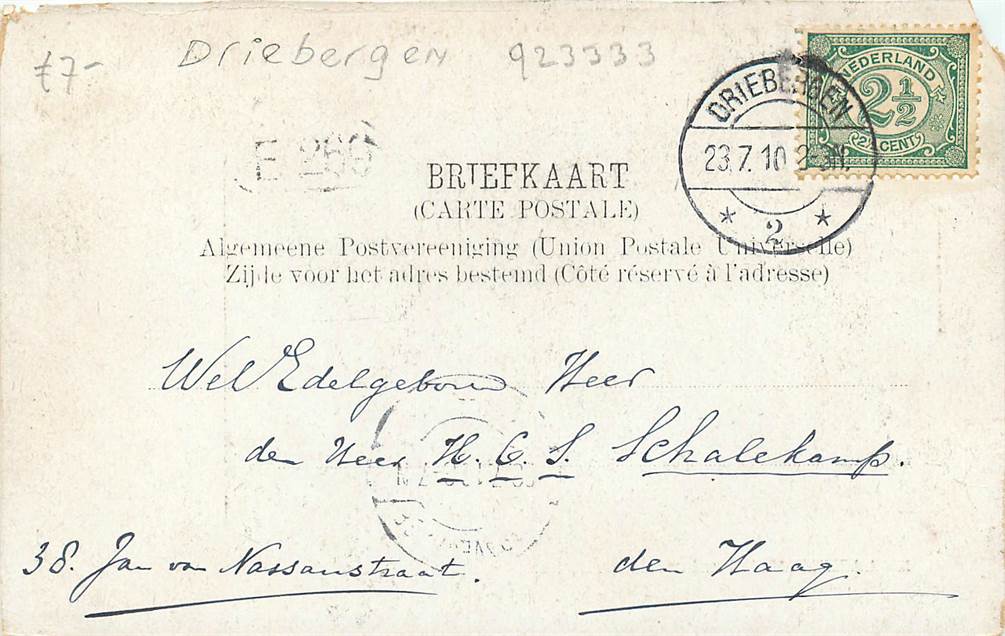 £7- Driebergen 923333
NEDERLAND
2½
2½ CENT
DRIEBERGEN
23.7.10
2
E 266
BRIEFKAART
(CARTE POSTALE)
Algemeene Postvereeniging (Union Postale Universelle)
Zijde voor het adres bestemd (Côté réservé à l'adresse)
Wel Edelgeboren Heer
den Heer H. C. S. Schalekamp.
38. Jan van Nassaustraat. den Haag.